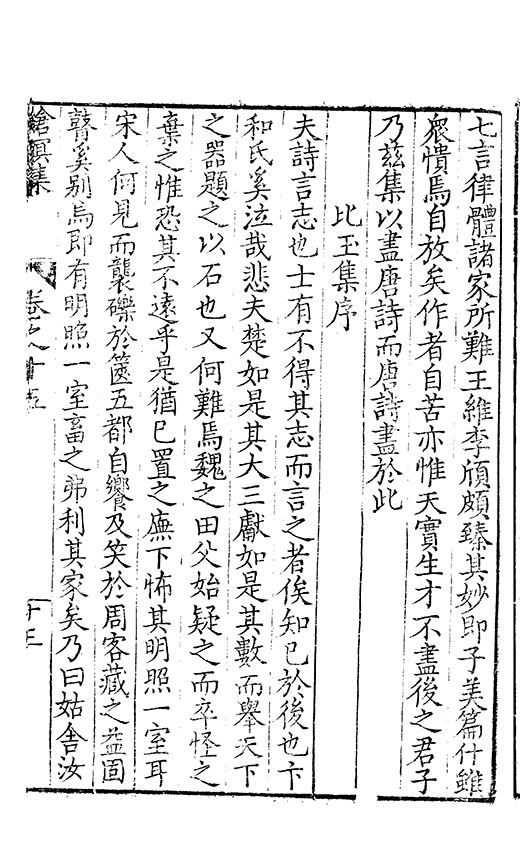 七言律體諸家所難王維李頎頗臻其妙即子美篇什雖
眾憒焉自放矣作者自苦亦惟天實生才不盡後之君子
乃茲集以盡唐詩而唐詩盡於此
比玉集序
夫詩言志也士有不得其志而言之者俟知己於後也卞
和氏奚泣哉悲夫楚如是其大三獻如是其數而舉天下
之器題之以石也又何難焉魏之田父始疑之而卒怪之
棄之惟恐其不遠乎是猶已置之廡下怖其明照一室耳
宋人何見而襲礫於篋五都自饗及笑於周客藏之益固
瞽奚別焉即有明照一室畜之弗利其家矣乃曰姑舍汝
滄溟集
卷之十五
十三